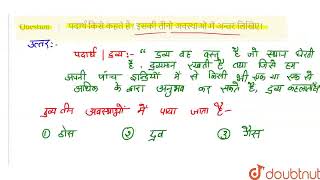 Question पदार्थ किसे कहते है? इसकी तीनो अवस्थाओ में अन्तर लिखिए।
उत्तर:-
पदार्थ | द्रव्य:- "द्रव्य वह वस्तु है जो स्थान घेरती
है। द्रव्यमान रखती है तथा जिसे हम
अपनी पांच इन्द्रियों में से किसी भी एक या एक से
अधिक के द्वारा अनुभव कर सकते हैं, द्रव्य कहलाता है।"
द्रव्य तीन अवस्थाओं में पाया जाता है:-
① ठोस ② द्रव ③ गैस
doubtnut